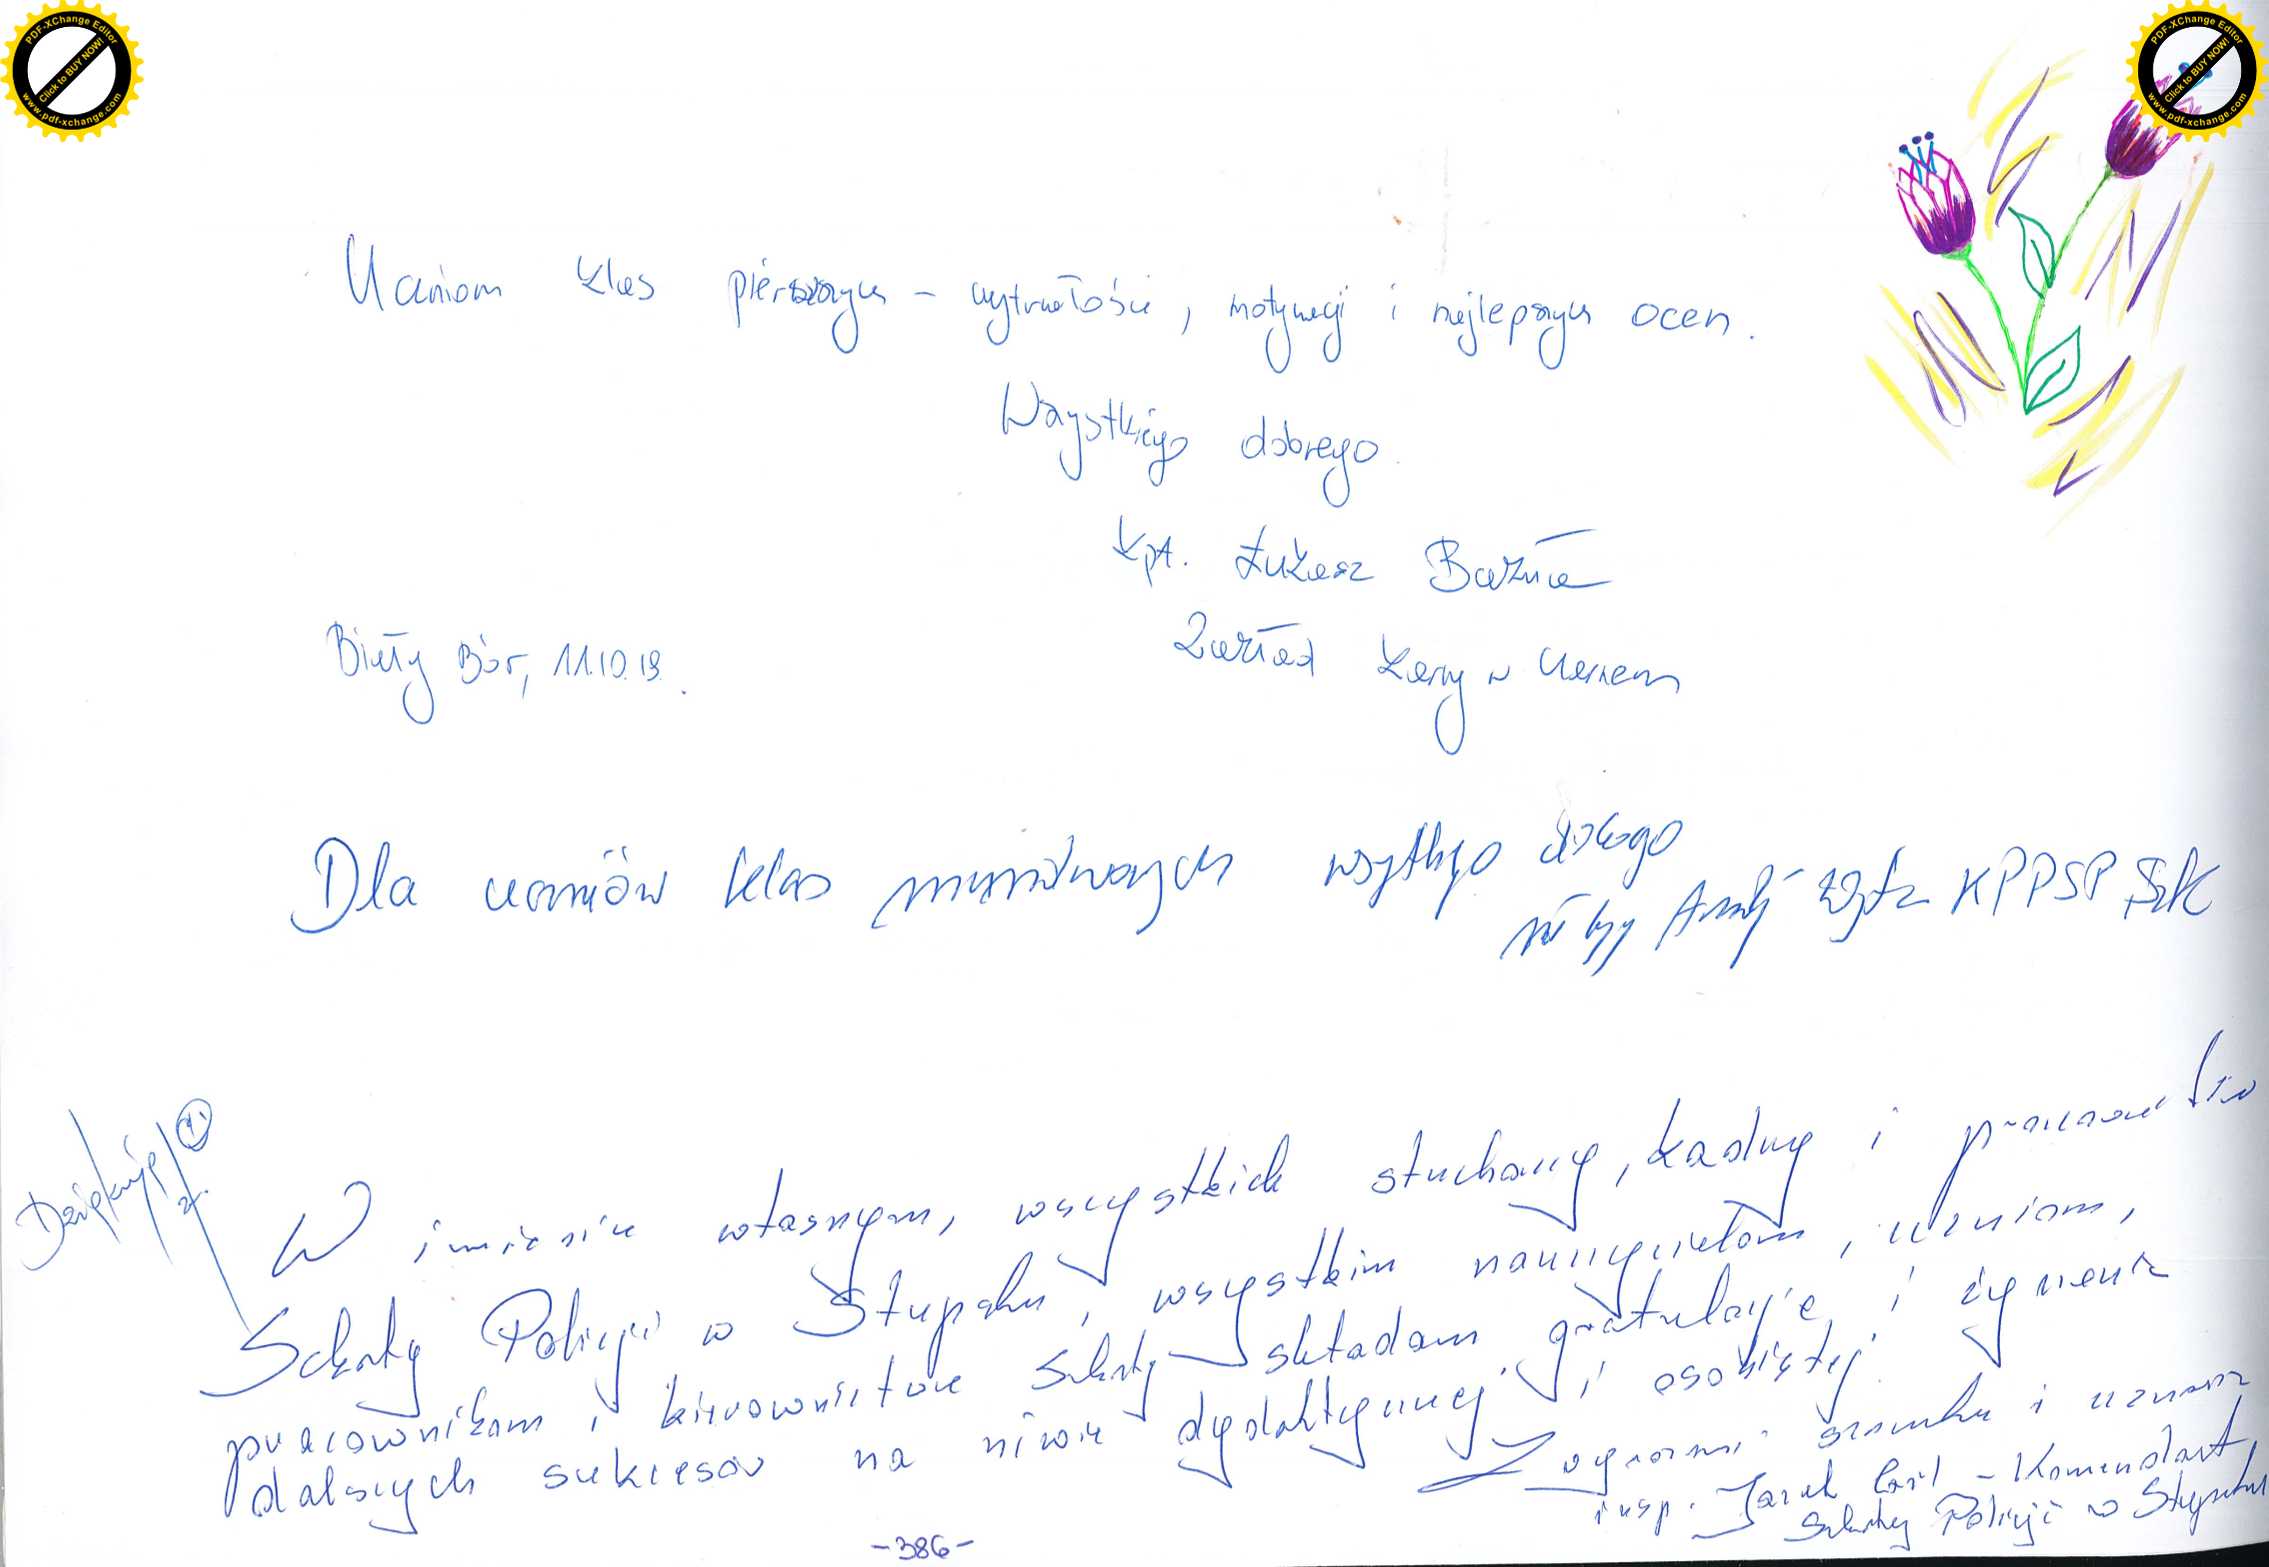 PDF-XChange Editor
Click to BUY NOW!
www.pdf-xchange.com
PDF-XChange Editor
Click to BUY NOW!
www.pdf-xchange.com
Uczniom klas pierwszych – wytrwałości, motywacji i najlepszych ocen.
Wszystkiego dobrego
kpt. Łukasz
Zakład Karny w Czarnem
Biały Bór, 11.10.19.
Dla uczniów klas mundurowych wszystkiego dobrego
KPPSP
Dziękuję
W imieniu własnym, wszystkich słuchaczy, kadry i pracowników
Szkoły Policji w Słupsku, wszystkim nauczycielom, uczniom,
pracownikom i kierownictwu Szkoły składam gratulacje i życzenia
dalszych sukcesów na niwie dydaktycznej i osobistej.
Z wyrazami szacunku i uznania
insp. Jacek – Komendant
Szkoły Policji w Słupsku
-386-